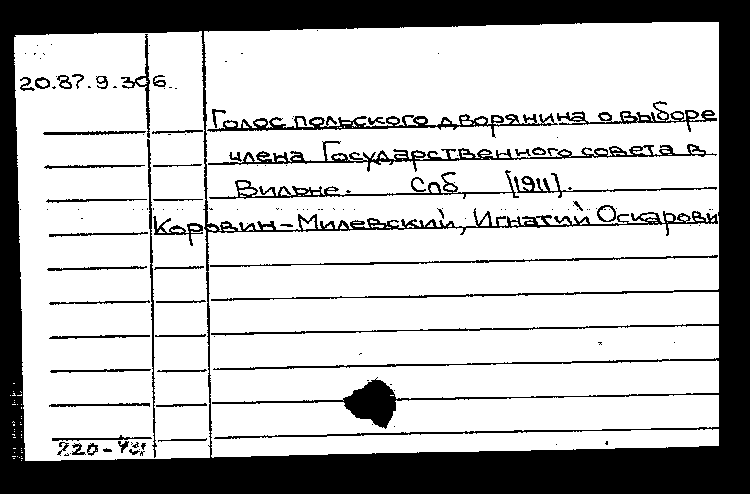 20.87.9.306.
Голос польского дворянина о выборе
члена Государственного совета в
Вильне. Спб, [1911].
Коровин-Милевский, Игнатий Оскарови